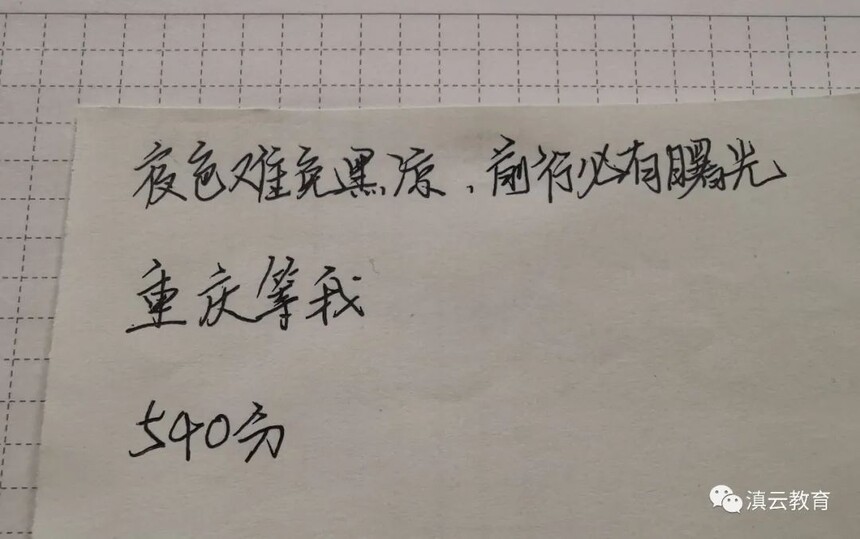 夜色难免黑凉，前行必有曙光
重庆等我
540分
滇云教育